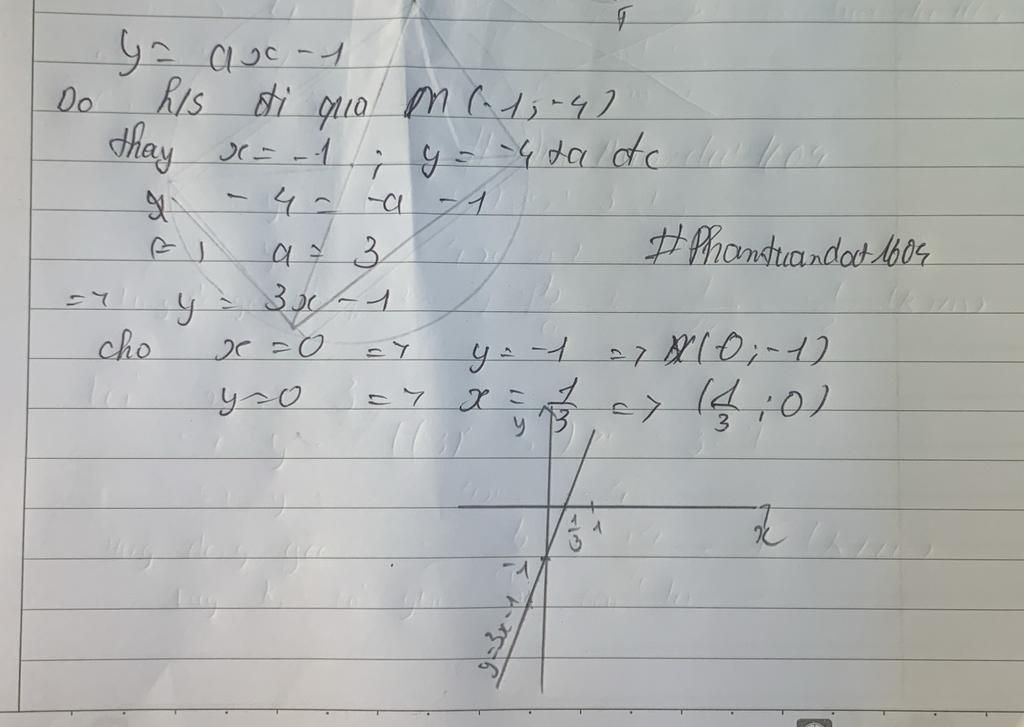 y = ax - 1
Do h/s đi qua M(-1; -4)
thay x = -1 ; y = -4 ta đc
- 4 = -a - 1
(=) a = 3
#Phantuandat1604
=> y = 3x - 1
cho x = 0 => y = -1 => (0; -1)
y = 0 => x = 1/3 => (1/3; 0)
y
1/3 1
x
-1
y=3x-1